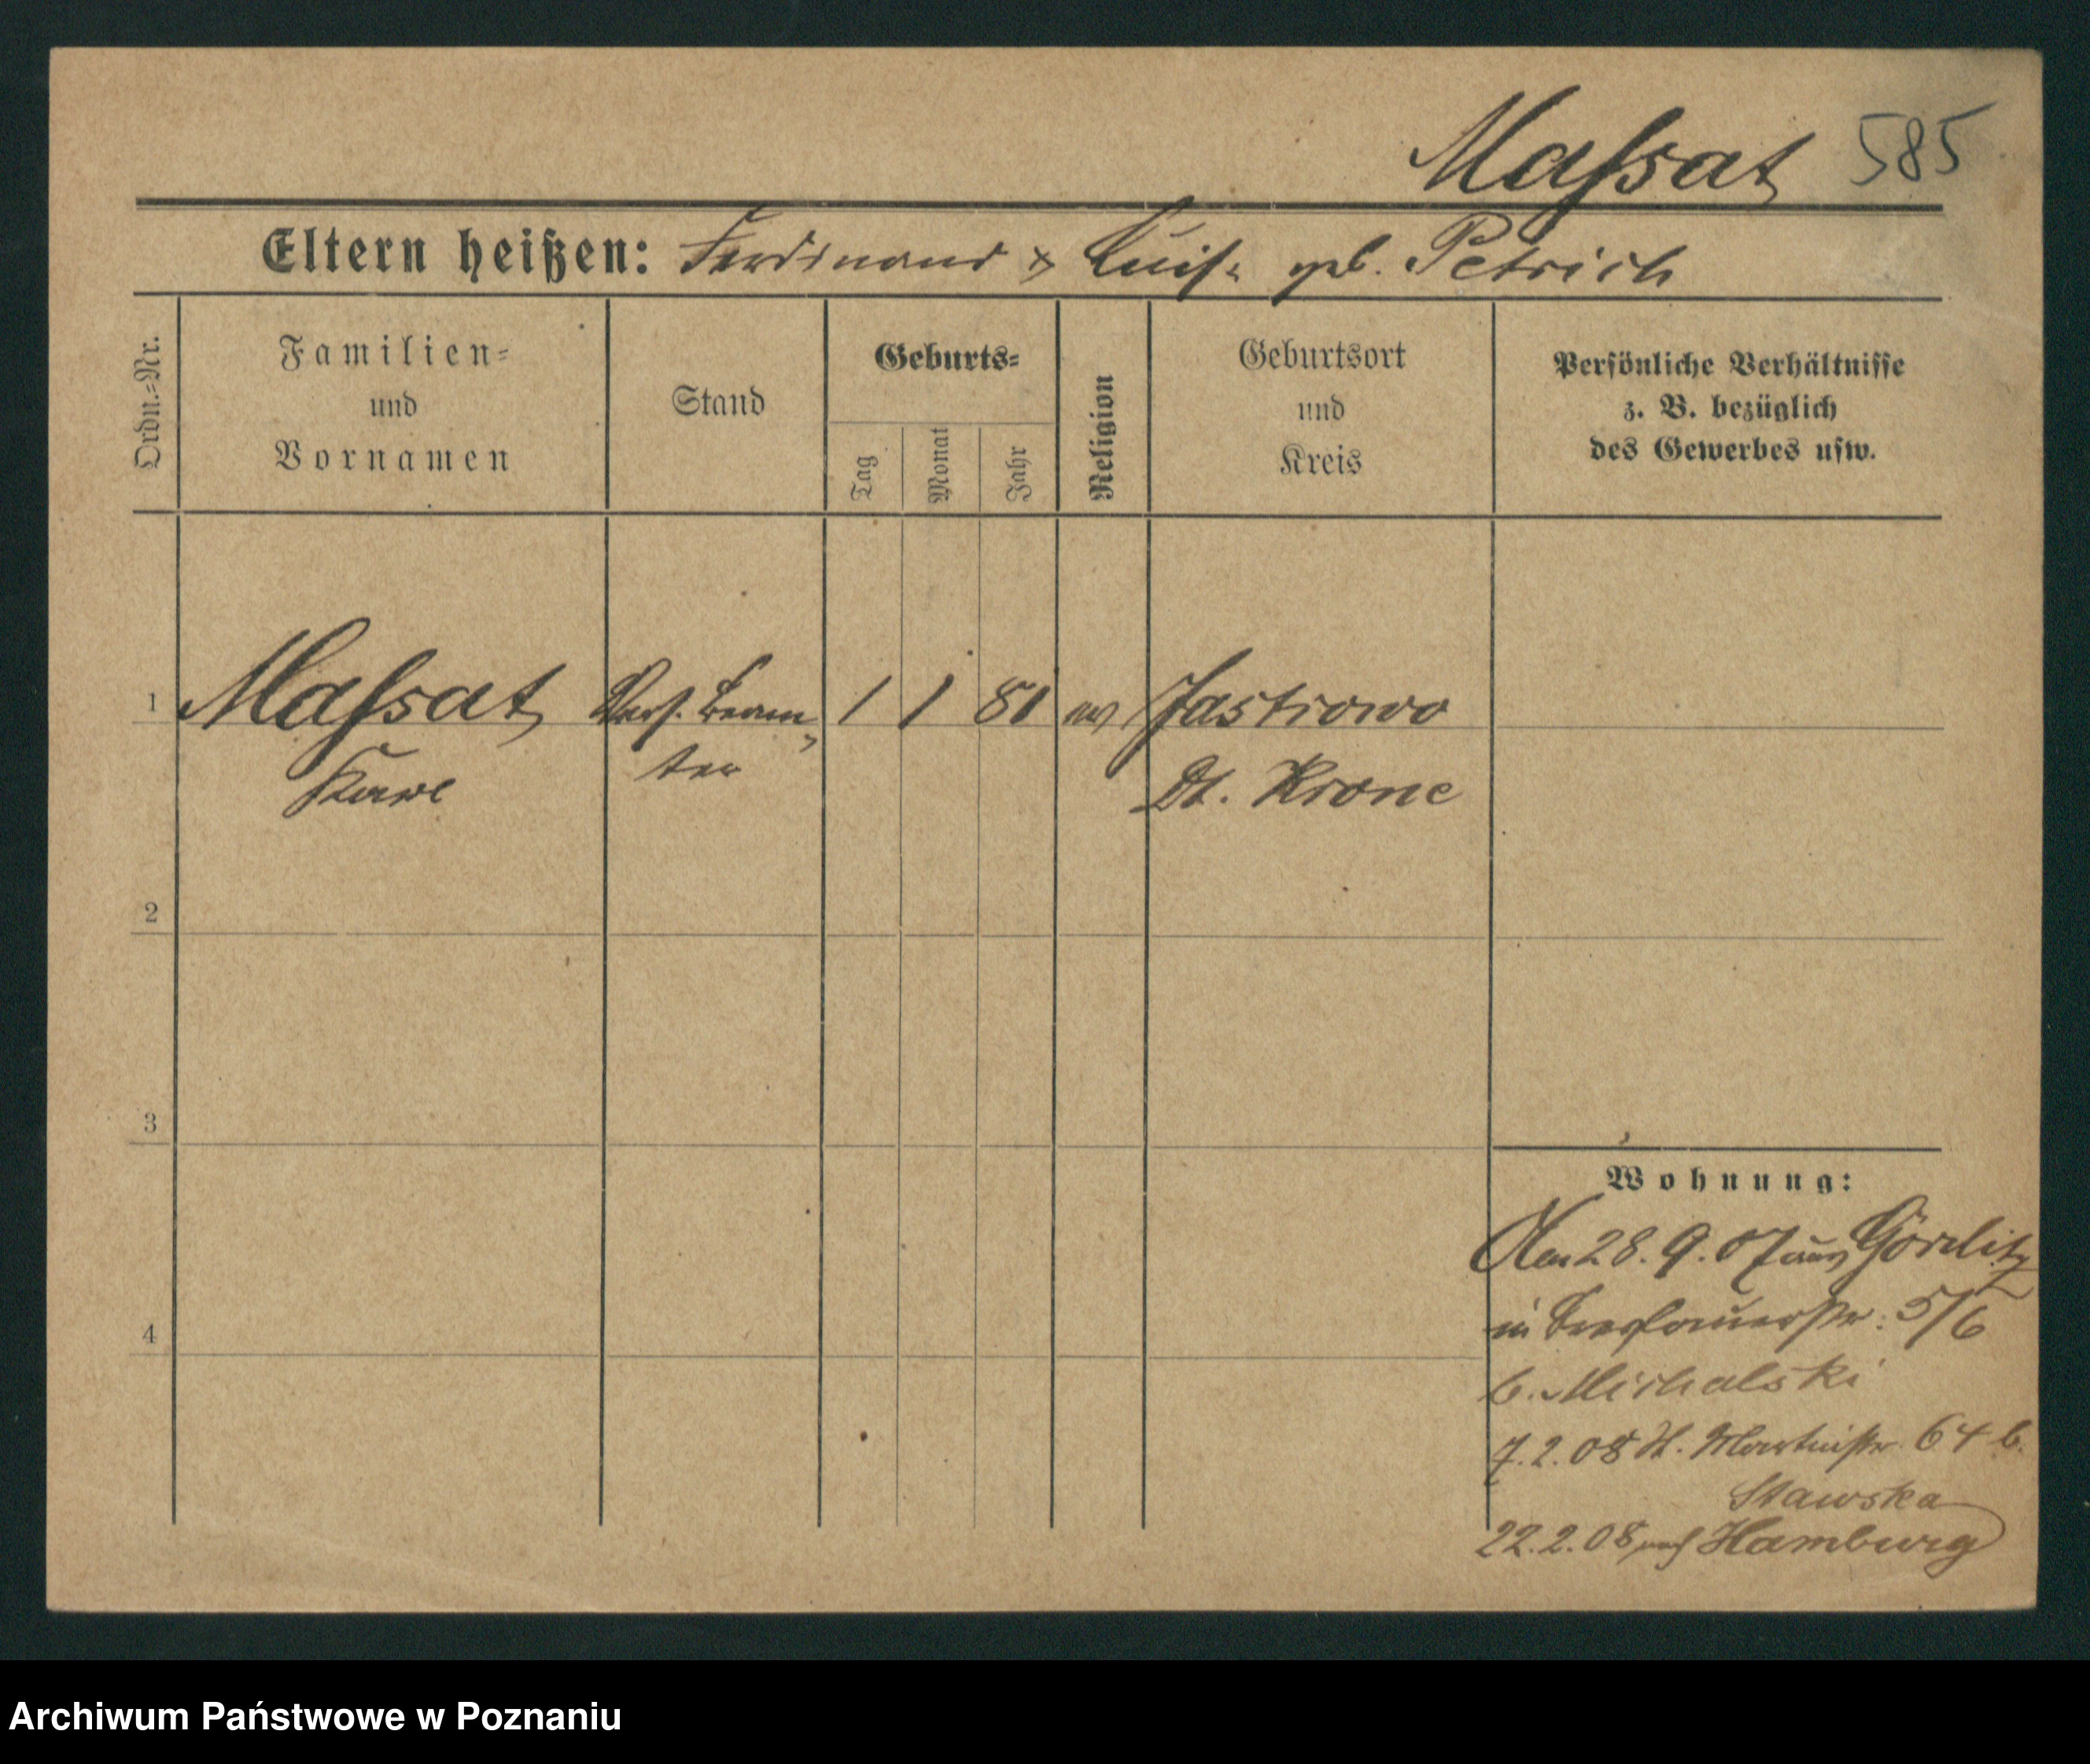 Maſsat 585
Eltern heißen: Ferdinand & Luise geb. Petrich
Ordn.=Nr.
Familien=
und
Vornamen
Stand
Geburts=
Tag
Monat
Jahr
Religion
Geburtsort
und
Kreis
Persönliche Verhältnisse
z. B. bezüglich
des Gewerbes usw.
1 Maſsat Vers. Beam- 1 1 81 ev Jastrowo
Karl ter Dt. Krone
2
3
4
Wohnung:
Am 28. 9. 07 aus Görlitz
in Breslauerstr. 5/6
b. Michalski
7. 2. 08 St. Martinstr. 64 b.
Stawska
22. 2. 08 nach Hamburg
Archiwum Państwowe w Poznaniu